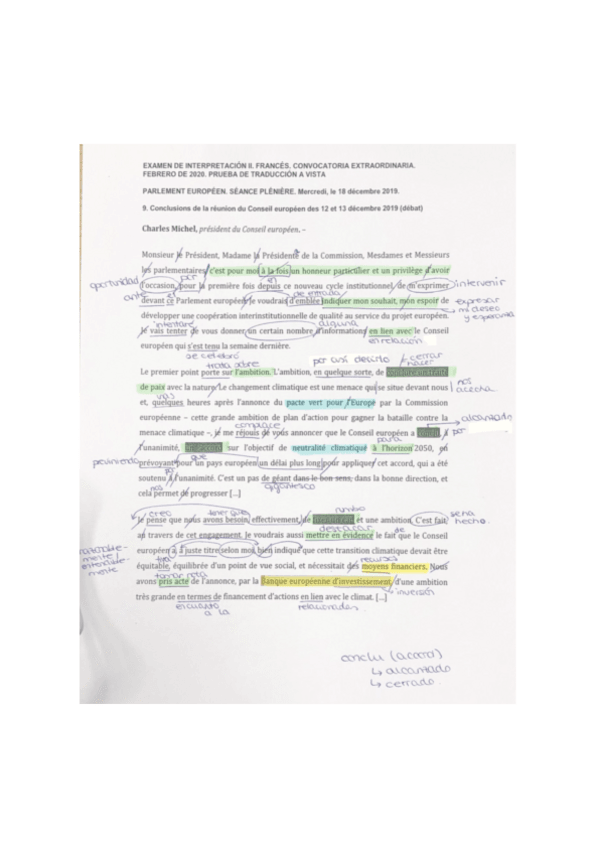 EXAMEN DE INTERPRETACIÓN II. FRANCÉS. CONVOCATORIA EXTRAORDINARIA.
FEBRERO DE 2020. PRUEBA DE TRADUCCIÓN A VISTA
PARLEMENT EUROPÉEN. SÉANCE PLÉNIÈRE. Mercredi, le 18 décembre 2019.
9. Conclusions de la réunion du Conseil européen des 12 et 13 décembre 2019 (débat)
Charles Michel, président du Conseil européen. –
Monsieur le Président, Madame la Présidente de la Commission, Mesdames et Messieurs
les parlementaires, c'est pour moi à la fois un honneur particulier et un privilège d'avoir
oportunidad por en
l'occasion, pour la première fois depuis ce nouveau cycle institutionnel, de m'exprimer intervenir
ante el de entrada
devant ce Parlement européen. Je voudrais d'emblée indiquer mon souhait, mon espoir de expresar
mi deseo
y esperanza
développer une coopération interinstitutionnelle de qualité au service du projet européen.
intentaré alguna
Je vais tenter de vous donner un certain nombre d'informations en lien avec le Conseil
en relación
européen qui s'est tenu la semaine dernière.
se celebró
trata sobre por así decirlo cerrar
hacer
Le premier point porte sur l'ambition. L'ambition, en quelque sorte, de
de paix avec la nature. Le changement climatique est une menace qui se situe devant nous nos
acecha
et, quelques heures après l'annonce du pacte vert pour l'Europe par la Commission
européenne – cette grande ambition de plan d'action pour gagner la bataille contre la
complace alcanzado
menace climatique –, je me réjouis de vous annoncer que le Conseil européen a por
para
l'unanimité, sur l'objectif de neutralité climatique à l'horizon 2050, en
previniendo que
prévoyant pour un pays européen un délai plus long pour appliquer cet accord, qui a été
por
soutenu à l'unanimité. C'est un pas de géant dans le bon sens, dans la bonne direction, et
nos gigantesco
cela permet de progresser [...]
creo tener que rumbo
Je pense que nous avons besoin, effectivement, de et une ambition. C'est fait, se ha
hecho
destacar de
au travers de cet engagement. Je voudrais aussi mettre en évidence le fait que le Conseil
européen a, à juste titre selon moi, bien indiqué que cette transition climatique devait être
recursos
équitable, équilibrée d'un point de vue social, et nécessitait des moyens financiers. Nous
tomar nota
avons pris acte de l'annonce, par la Banque européenne d'investissement, d'une ambition
inversión
très grande en termes de financement d'actions en lien avec le climat. [...]
en cuanto
a la relacionadas
conclu (accord)
↳ alcanzado
↳ cerrado